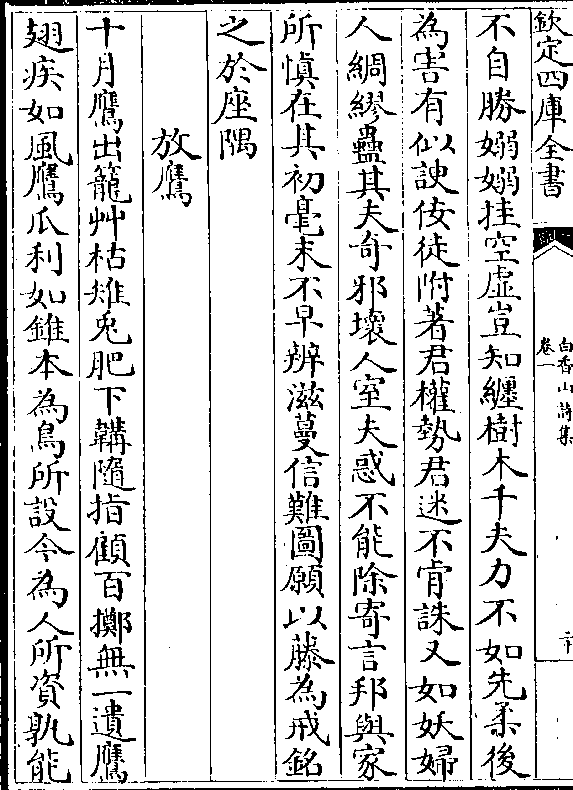 欽定四庫全書
白香山詩集
卷一
二十
不自勝嫋嫋挂空虛豈知纏樹木千夫力不如先柔後
為害有似諛佞徒附著君權勢君迷不肯誅又如妖婦
人綢繆蠱其夫奇邪壞人室夫惑不能除寄言邦與家
所慎在其初毫末不早辨滋蔓信難圖願以藤為戒銘
之於座隅
放鷹
十月鷹出籠艸枯雉兎肥下韝隨指顧百擲無一遺鷹
翅疾如風鷹爪利如錐本為鳥所設今為人所資孰能